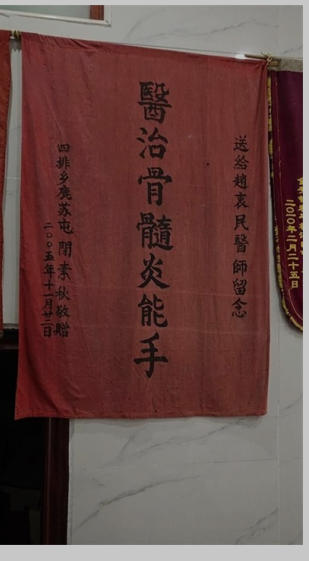 送给趙衷民醫師留念
醫治骨髓炎能手
四排乡鹿苏屯 閉素秋敬贈
二〇〇五年十一月廿二日
二〇二〇年二月二十五日